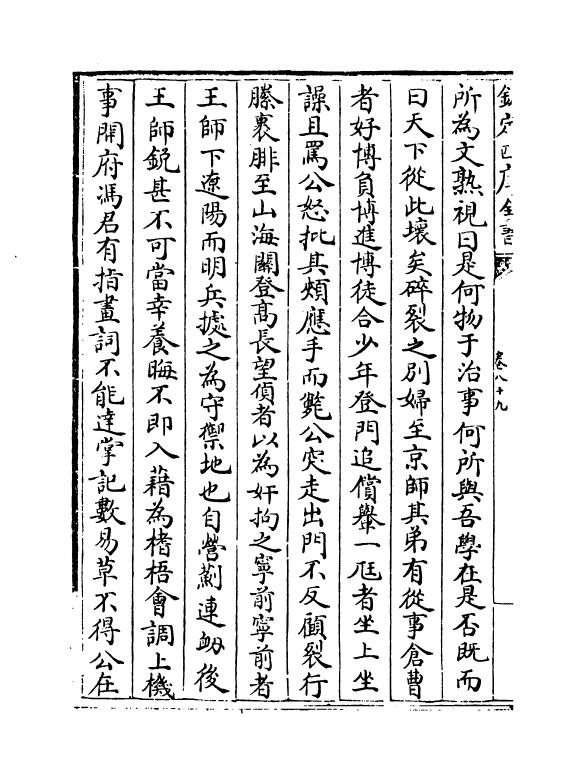 欽定四庫全書
卷八十九
所為文熟視曰是何物于治事何所與吾學在是否既而
曰天下從此壞矣碎裂之別婦至京師其弟有從事倉曹
者好博負博進博徒合少年登門追償舉一尫者坐上坐
譟且罵公怒批其頰應手而斃公突走出門不反顧裂行
縢裹腓至山海關登髙長望偵者以為奸拘之寧前寧前者
王師下遼陽而明兵據之為守禦地也自營薊連衂後
王師鋭甚不可當幸養晦不即入藉為楮梧會調上機
事開府馮君有指畫詞不能達掌記數易草不得公在